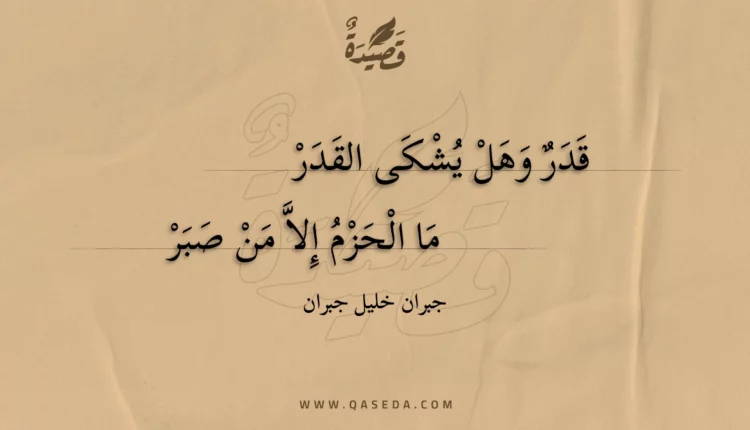 قَصِيدَةٌ
قَدَرٌ وَهَلْ يُشْكَى القَدَرْ
مَا الْحَزْمُ إِلاَّ مَنْ صَبَرْ
جبران خليل جبران
WWW.QASEDA.COM